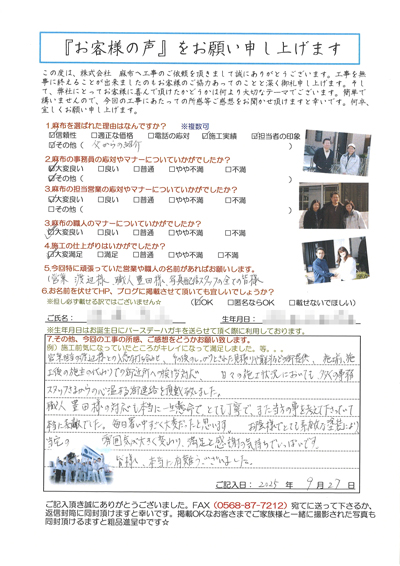 『お客様の声』をお願い申し上げます
この度は、株式会社 麻布へ工事のご依頼を頂きまして誠にありがとうございます。工事を無
事に終えることが出来ましたのもお客様のご協力あってのことと深く御礼申し上げます。そし
て、弊社にとってお客様に喜んで頂けたかどうかは何より大切なテーマでございます。簡単で
構いませんので、今回の工事にあたっての所感等ご感想をお聞かせ頂けますと幸いです。何卒、
宜しくお願い申し上げます。
1.麻布を選ばれた理由はなんですか? ※複数可
☑信頼性 □適正な価格 □電話の応対 ☑施工実績 ☑担当者の印象
☑その他( 父からの紹介 )
2.麻布の事務員の応対やマナーについていかがでしたか?
☑大変良い □良い □普通 □やや不満 □不満
□その他( )
3.麻布の担当営業の応対やマナーについていかがでしたか?
☑大変良い □良い □普通 □やや不満 □不満
□その他( )
3.麻布の職人のマナーについていかがでしたか?
☑大変良い □良い □普通 □やや不満 □不満
4.施工の仕上がりはいかがでしたか?
☑大変満足 □満足 □普通 □やや不満 □不満
5.今回特に頑張っていた営業や職人の名前があればお願いします。
営業 渡辺様 職人 豊田様
6.お名前を伏せてHP、ブログに掲載させて頂いても宜しいでしょうか?
※但し必ず載せる訳ではございません☆ (☑OK □匿名ならOK □載せないでほしい)
ご氏名: 生年月日:
※生年月日はお誕生日にバースデーハガキを送らせて頂く際に利用しております。
7.その他、今回の工事の所感、ご感想をどうかお願い致します。
例)施工前気になっていたところがキレイになって満足しました。等。。。
営業担当の渡辺様
スタッフさまからの心温まる
職人 豊田様の対応も本当に一生懸命で、とても丁寧で、また
本当に素敵でした。毎日暑い中すごく大変だったと思います。
雰囲気が大きく変わり、満足と感謝の気持ちでいっぱいです。
皆様、本当に有難うございました。
ご記入日: 2025年 9月27日
ご記入頂き誠にありがとうございました。FAX(0568-87-7212)宛てに送って下さるか、
返信封筒に同封頂けますと幸いです。掲載OKなお客さまでご家族様と一緒に撮影された写真も
同封頂けますと粗品進呈中です☆